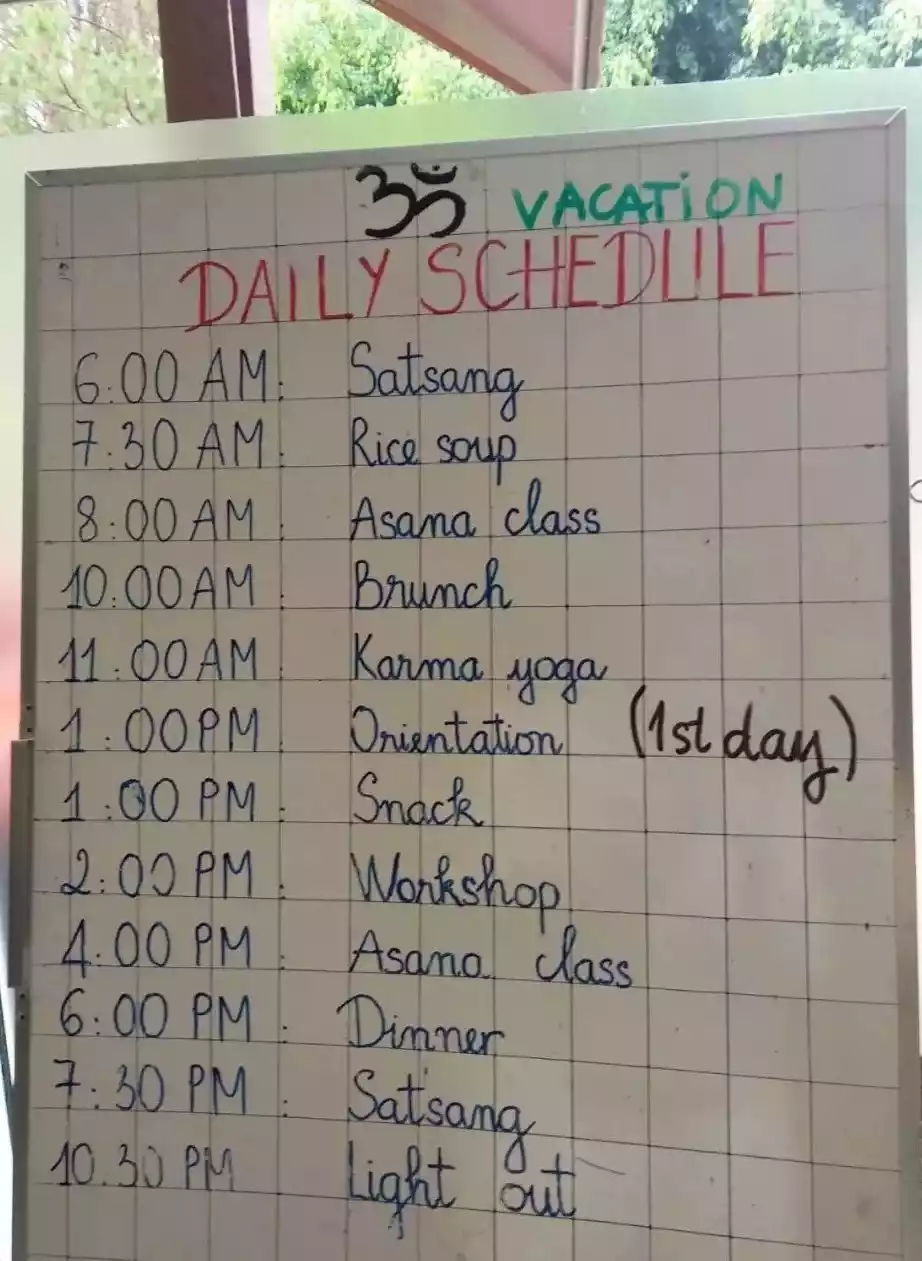 ॐ VACATiON
DAILY SCHEDULE
6.00 AM: Satsang
7.30 AM: Rice soup
8:00 AM: Asana class
10.00 AM: Brunch
11.00 AM: Karma yoga
1:00 PM Orientation (1st day)
1:00 PM: Snack
2:00 PM: Workshop
4:00 PM: Asana class
6:00 PM: Dinner
7:30 PM: Satsang
10.30 PM Light out